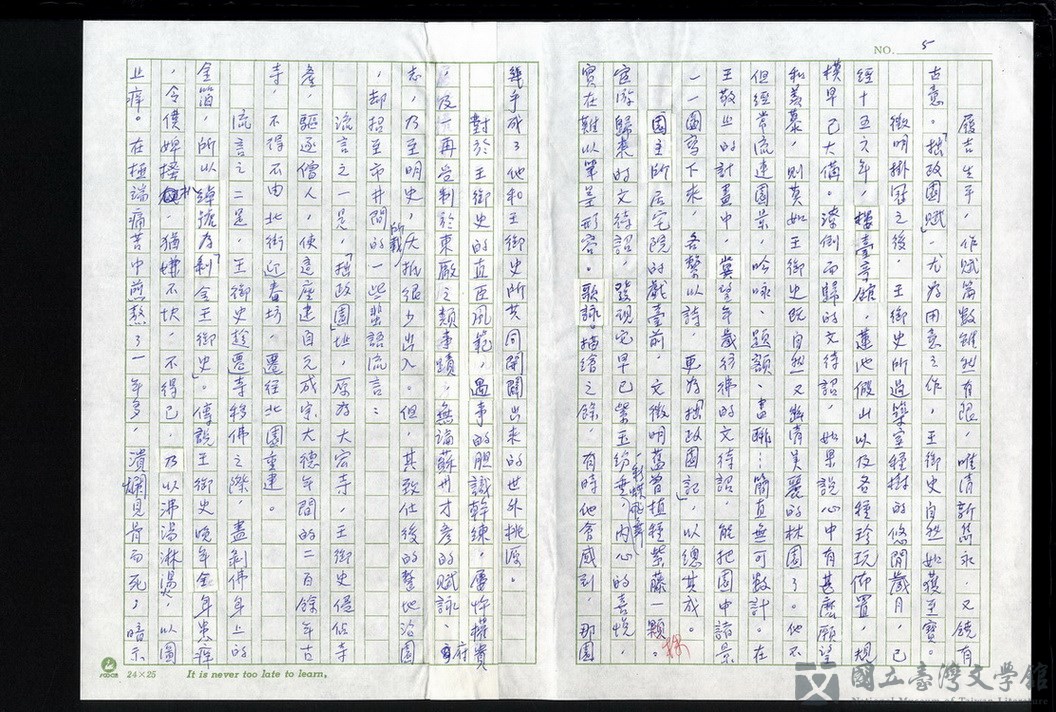 NO. 5
履吉生平，作賦篇數雖然有限，唯清新雋永，又饒有
古意。「拙政園賦」，尤為用意之作，王御史自然如獲至寶。
徵明掛冠之後，王御史所過築室種樹的悠閒歲月，已
經十五六年，樓臺亭館，蓮池假山以及各種珍玩佈置，規
模早已大備。潦倒而歸的文待詔，如果說心中有甚麼願望
和羨慕，則莫如王御史既自然又幽清美麗的林園了。他不
但經常流連園景，吟咏、題額、書聯…簡直無可數計。在
王敬止的計畫中，冀望年歲彷彿的文待詔，能把園中諸景
一一圖寫下來，各繫以詩，更為「拙政園記」，以總其成。
園主所居宅院的戲臺前，文徵明舊曾植種紫藤一顆。株
宦游歸來的文待詔，發現它早已紫玉紛垂，彩蝶飛舞，內心的喜悅，
實在難以筆墨形容。歌詠、描繪之餘，有時他會感到，那園
幾乎成了他和王御史所共同開闢出來的世外桃源。
對於王御史的直臣風範，遇事的胆識幹練，屢忤權貴
，及一再受制於東廠之類事蹟，無論蘇州才彥的賦詠、府
志，乃至明史，大抵很少出入。但，其致仕後的整地治園
，却招至市井間所載的一些蜚語流言：
流言之一是，「拙政園」址，原為大宏寺，王御史侵佔寺
產，驅逐僧人，使這座建自元成宗大德年間的二百餘年古
寺，不得不由北街迎春坊，遷經北園重建。
流言之二是，王御史趁遷寺移佛之際，盡剝佛身上的
金箔，所以綽號為「剝金王御史」。傳說王御史晚年全身患癢
，令僕婢搔扒，猶嫌不快，不得已，乃以沸湯淋燙，以圖
止癢。在極端痛苦中煎熬了一年多，潰爛見骨而死，暗示
24×25
It is never too late to learn,
國立臺灣文學館
National Museum of Taiwan Literature